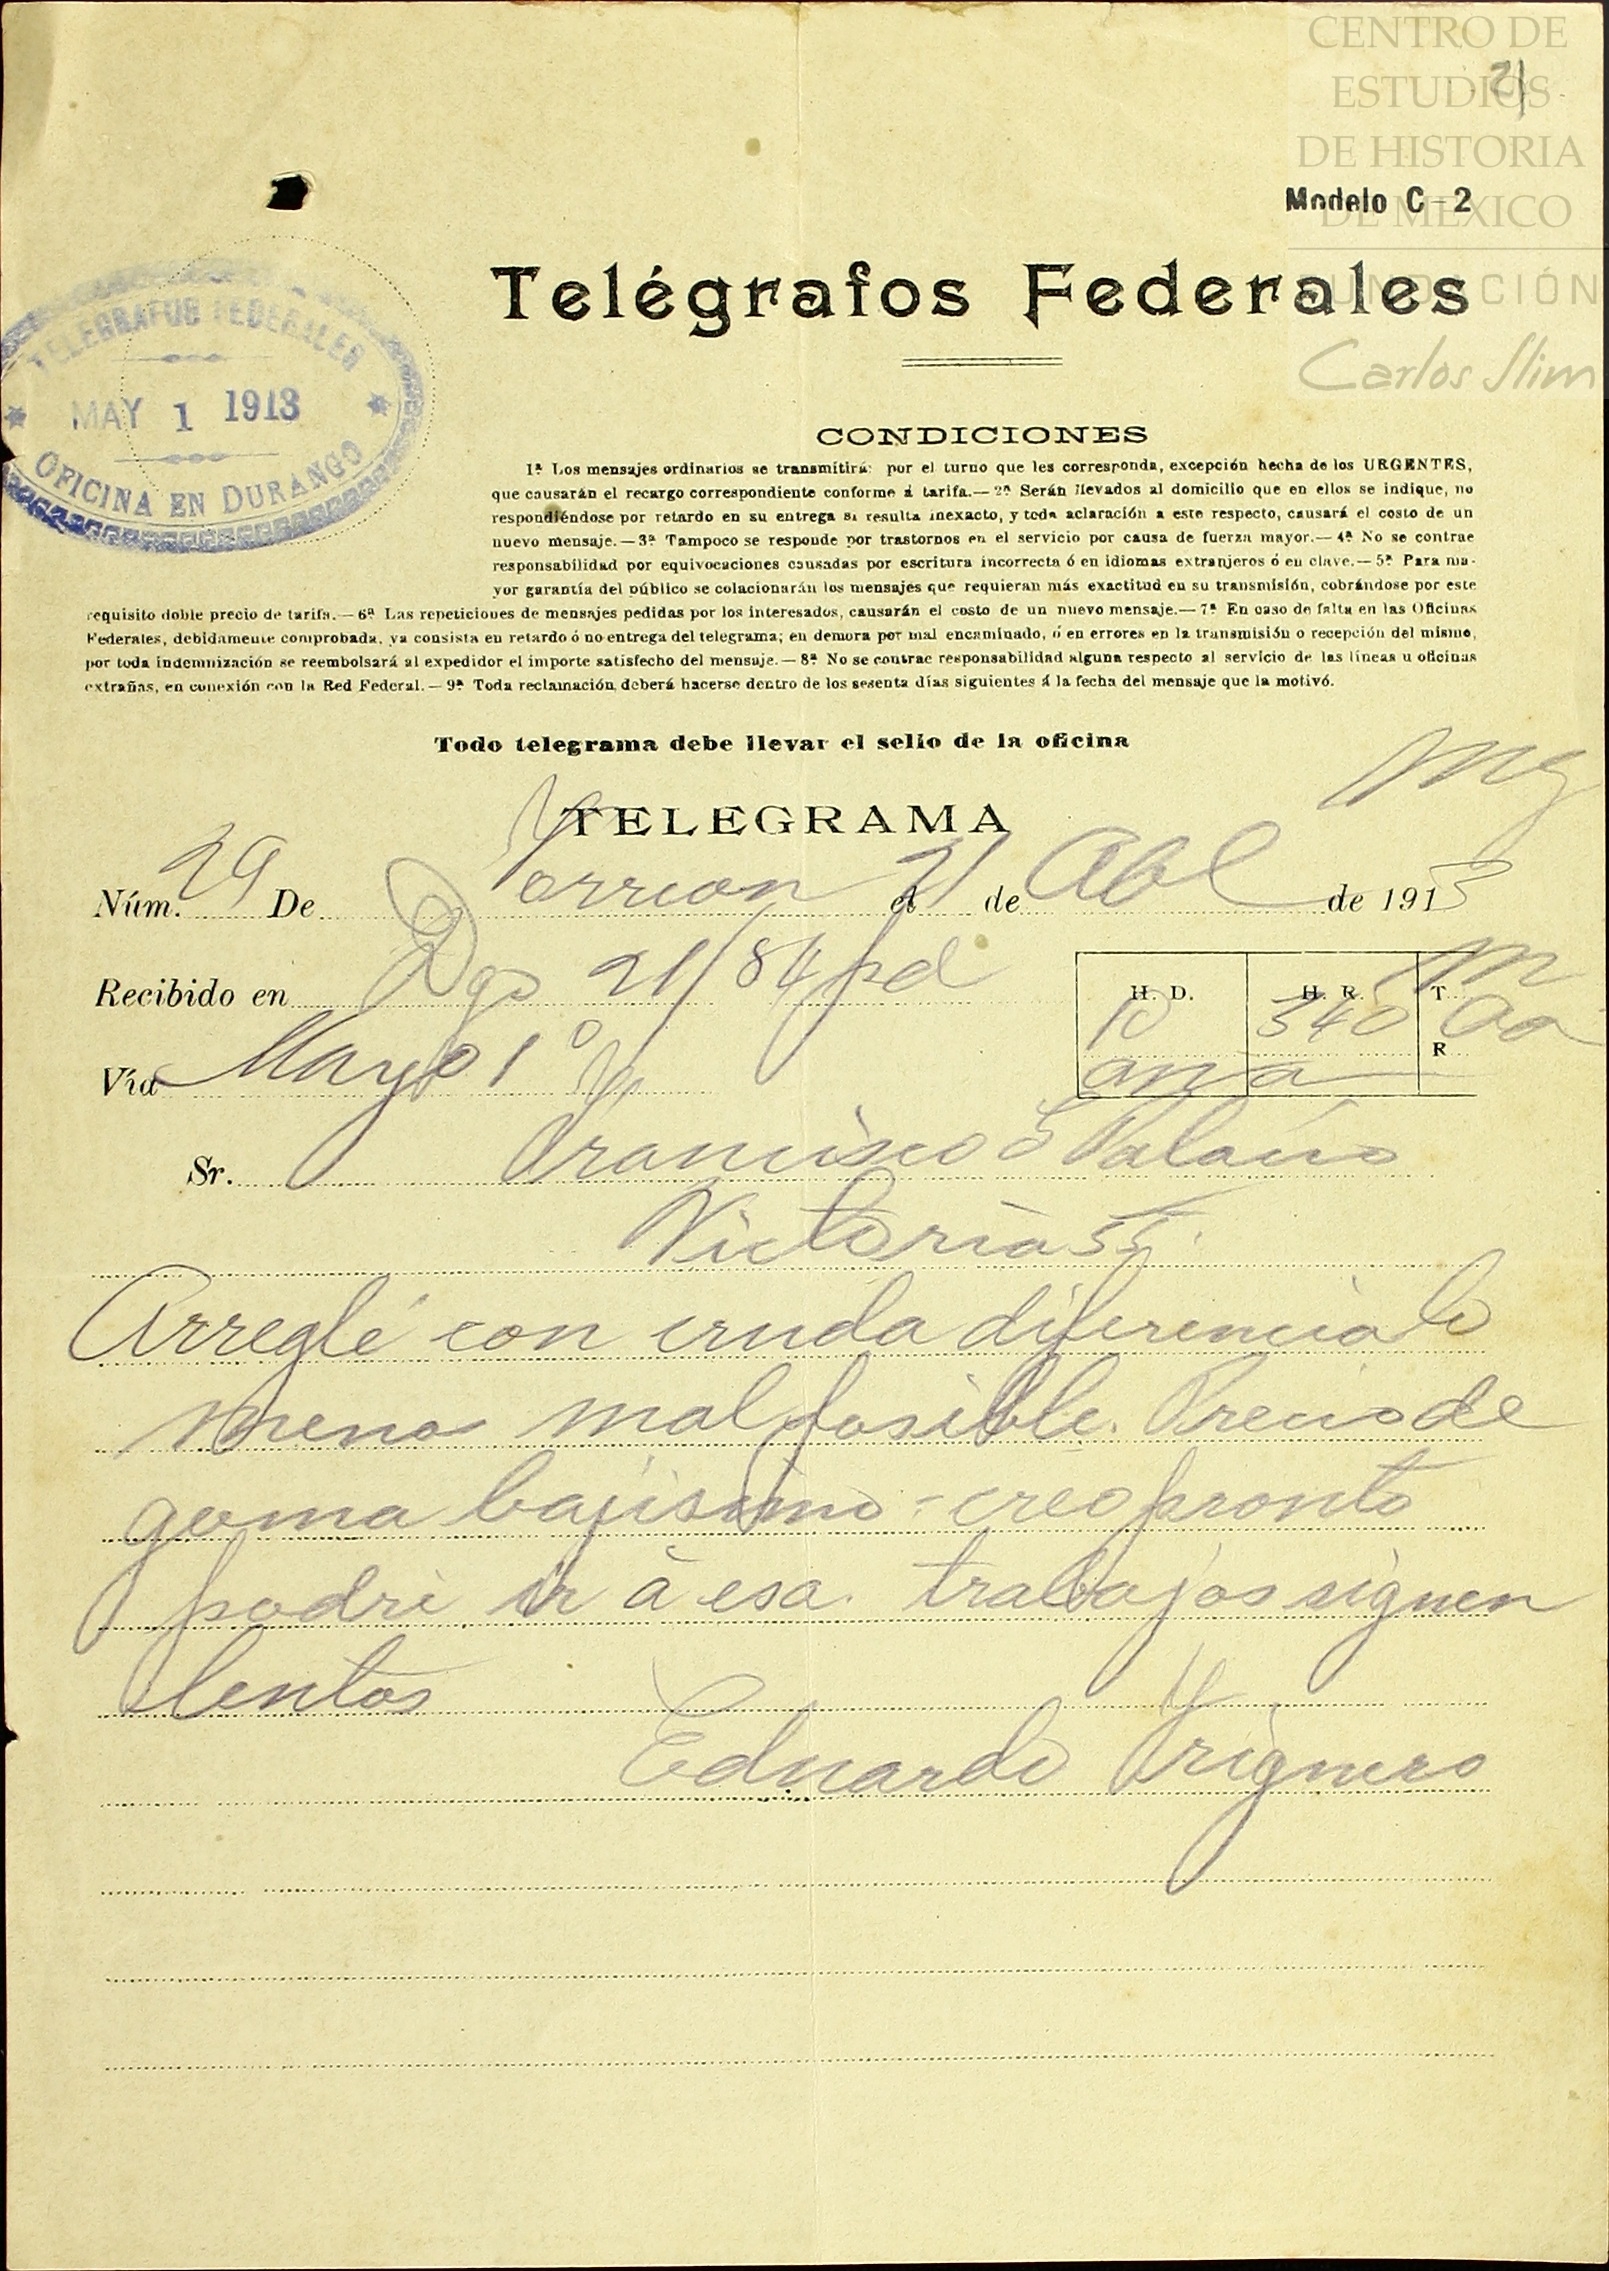 CENTRO DE
ESTUDIOS
DE HISTORIA
DE MEXICO
FUNDACIÓN
Carlos Slim
21
Modelo C-2
Telégrafos Federales
TELEGRAFOS FEDERALES
MAY 1 1913
OFICINA EN DURANGO
CONDICIONES
1ª Los mensajes ordinarios se transmitirá: por el turno que les corresponda, excepción hecha de los URGENTES,
que causarán el recargo correspondiente conforme á tarifa.—2ª Serán llevados al domicilio que en ellos se indique, no
respondiéndose por retardo en su entrega si resulta inexacto, y toda aclaración a este respecto, causará el costo de un
nuevo mensaje.—3ª Tampoco se responde por trastornos en el servicio por causa de fuerza mayor.—4ª No se contrae
responsabilidad por equivocaciones causadas por escritura incorrecta ó en idiomas extranjeros ó en clave.—5ª Para ma-
yor garantía del público se colacionarán los mensajes que requieran más exactitud en su transmisión, cobrándose por este
requisito doble precio de tarifa.—6ª Las repeticiones de mensajes pedidas por los interesados, causarán el costo de un nuevo mensaje.—7ª En caso de falta en las Oficinas
Federales, debidamente comprobada, ya consista en retardo ó no entrega del telegrama; en demora por mal encaminado, ó en errores en la transmisión o recepción del mismo,
por toda indemnización se reembolsará al expedidor el importe satisfecho del mensaje.—8ª No se contrae responsabilidad alguna respecto al servicio de las líneas u oficinas
extrañas, en conexión con la Red Federal.—9ª Toda reclamación deberá hacerse dentro de los sesenta días siguientes á la fecha del mensaje que la motivó.
Todo telegrama debe llevar el sello de la oficina
TELEGRAMA
Núm. 29 De Torreon el 21 de Abl de 1913
Recibido en Dgo 21/84 pd
H. D. H. R. T.
10 340
R
Vía Mayo 1º
Sr. Francisco G Palacio
Victoria 55.
Arreglé con cruda diferencia lo
menos mal posible. Precio de
goma bajisimo - creo pronto
podré ir á esa. trabajos siguen
lentos
Eduardo Yriguero